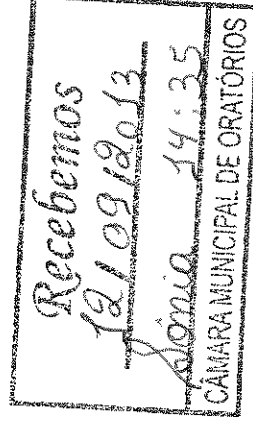 Recebemos
12/09/2013
Sonia 14:35
CÂMARA MUNICIPAL DE ORATÓRIOS